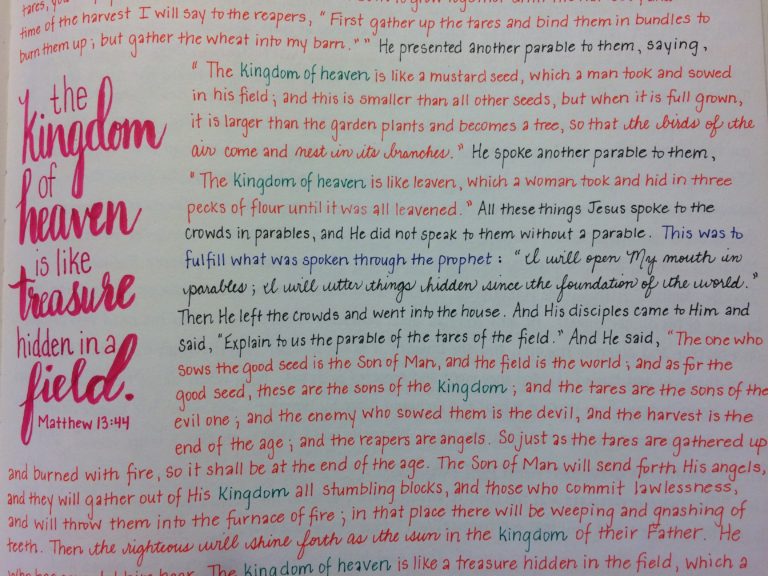 tares, you
time of the harvest I will say to the reapers, "First gather up the tares and bind them in bundles to
burn them up; but gather the wheat into my barn."" He presented another parable to them, saying,
"The Kingdom of heaven is like a mustard seed, which a man took and sowed
in his field; and this is smaller than all other seeds, but when it is full grown,
it is larger than the garden plants and becomes a tree, so that the birds of the
air come and nest in its branches." He spoke another parable to them,
"The Kingdom of heaven is like leaven, which a woman took and hid in three
pecks of flour until it was all leavened." All these things Jesus spoke to the
crowds in parables, and He did not speak to them without a parable. This was to
fulfill what was spoken through the prophet: "I will open My mouth in
parables; I will utter things hidden since the foundation of the world."
Then He left the crowds and went into the house. And His disciples came to Him and
said, "Explain to us the parable of the tares of the field." And He said, "The one who
sows the good seed is the Son of Man, and the field is the world; and as for the
good seed, these are the sons of the Kingdom; and the tares are the sons of the
evil one; and the enemy who sowed them is the devil, and the harvest is the
end of the age; and the reapers are angels. So just as the tares are gathered up
and burned with fire, so it shall be at the end of the age. The Son of Man will send forth His angels,
and they will gather out of His Kingdom all stumbling blocks, and those who commit lawlessness,
and will throw them into the furnace of fire; in that place there will be weeping and gnashing of
teeth. Then the righteous will shine forth as the sun in the kingdom of their Father. He
The kingdom of heaven is like a treasure hidden in the field, which a
the
kingdom
of
heaven
is like
treasure
hidden in a
field.
Matthew 13:44